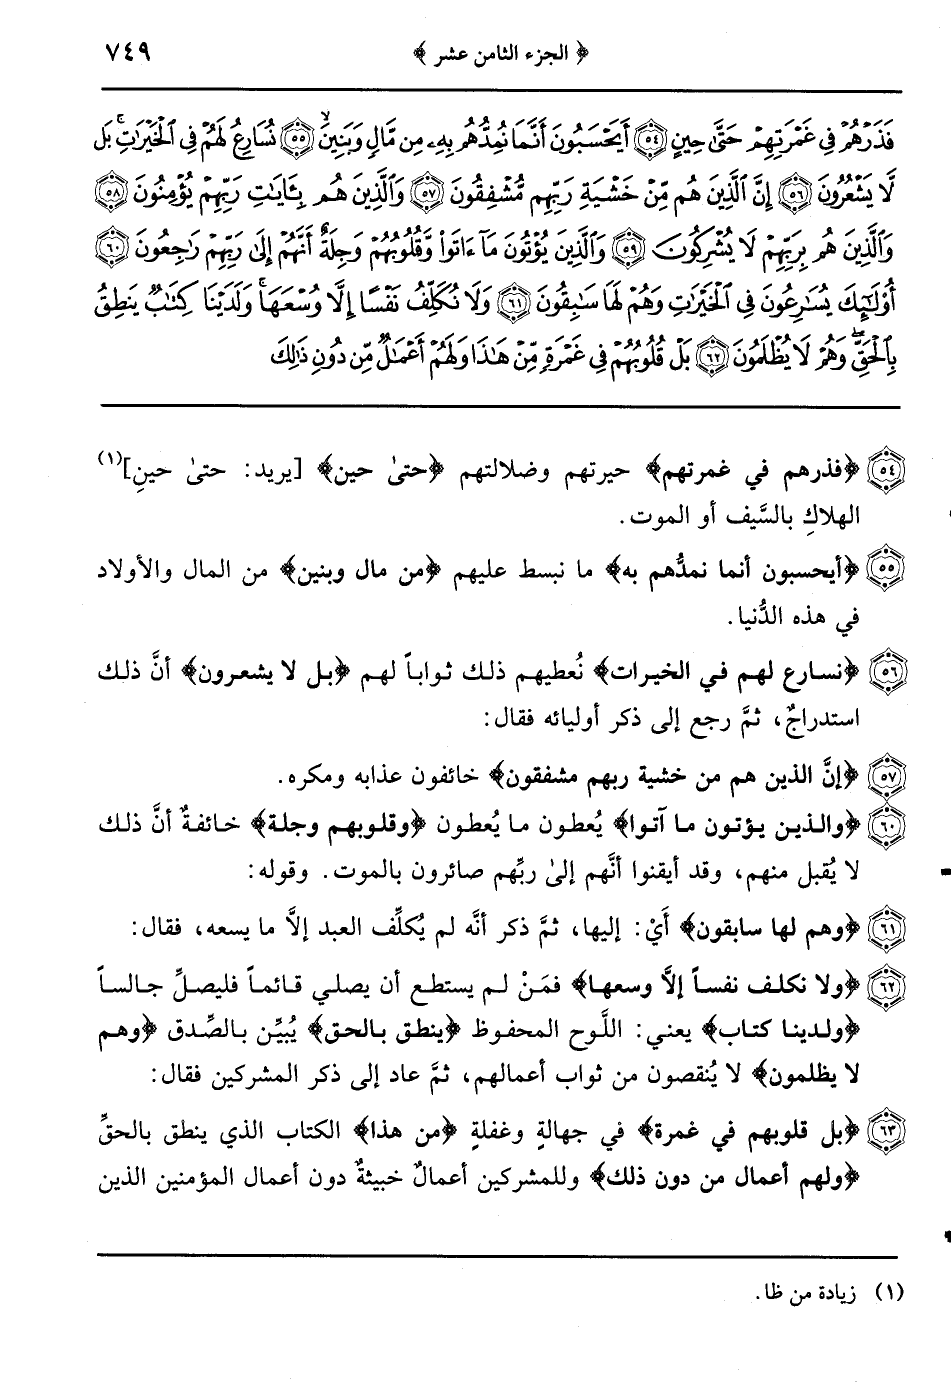 ﴿ الجزء الثامن عشر ﴾ ٧٤٩
فَذَرْهُمْ فِي غَمْرَتِهِمْ حَتَّىٰ حِينٍ ٥٤ أَيَحْسَبُونَ أَنَّمَا نُمِدُّهُم بِهِۦ مِن مَّالٍ وَبَنِينَ ٥٥ نُسَارِعُ لَهُمْ فِي ٱلْخَيْرَٰتِ ۚ بَل
لَّا يَشْعُرُونَ ٥٦ إِنَّ ٱلَّذِينَ هُم مِّنْ خَشْيَةِ رَبِّهِم مُّشْفِقُونَ ٥٧ وَٱلَّذِينَ هُم بِـَٔايَٰتِ رَبِّهِمْ يُؤْمِنُونَ ٥٨
وَٱلَّذِينَ هُم بِرَبِّهِمْ لَا يُشْرِكُونَ ٥٩ وَٱلَّذِينَ يُؤْتُونَ مَآ ءَاتَوا۟ وَّقُلُوبُهُمْ وَجِلَةٌ أَنَّهُمْ إِلَىٰ رَبِّهِمْ رَٰجِعُونَ ٦٠
أُو۟لَٰٓئِكَ يُسَٰرِعُونَ فِي ٱلْخَيْرَٰتِ وَهُمْ لَهَا سَٰبِقُونَ ٦١ وَلَا نُكَلِّفُ نَفْسًا إِلَّا وُسْعَهَا ۚ وَلَدَيْنَا كِتَٰبٌ يَنطِقُ
بِٱلْحَقِّ ۖ وَهُمْ لَا يُظْلَمُونَ ٦٢ بَلْ قُلُوبُهُمْ فِي غَمْرَةٍ مِّنْ هَٰذَا وَلَهُمْ أَعْمَٰلٌ مِّن دُونِ ذَٰلِكَ
٥٤ ﴿فذرهم في غمرتهم﴾ حيرتهم وضلالتهم ﴿حتىٰ حين﴾ [يريد: حتىٰ حينِ](١)
الهلاكِ بالسَّيف أو الموت.
٥٥ ﴿أيحسبون أنما نمدُّهم به﴾ ما نبسط عليهم ﴿من مال وبنين﴾ من المال والأولاد
في هذه الدُّنيا.
٥٦ ﴿نسارع لهم في الخيرات﴾ نُعطيهم ذلك ثواباً لهم ﴿بل لا يشعرون﴾ أنَّ ذلك
استدراجٌ، ثمَّ رجع إلى ذكر أوليائه فقال:
٥٧ ﴿إنَّ الذين هم من خشية ربهم مشفقون﴾ خائفون عذابه ومكره.
٦٠ ﴿والذين يؤتون ما آتوا﴾ يُعطون ما يُعطون ﴿وقلوبهم وجلة﴾ خائفةٌ أنَّ ذلك
لا يُقبل منهم، وقد أيقنوا أنَّهم إلىٰ ربِّهم صائرون بالموت. وقوله:
٦١ ﴿وهم لها سابقون﴾ أَيْ: إليها، ثمَّ ذكر أنَّه لم يُكلِّف العبد إلاَّ ما يسعه، فقال:
٦٢ ﴿ولا نكلف نفساً إلاَّ وسعها﴾ فمَنْ لم يستطع أن يصلي قائماً فليصلِّ جالساً
﴿ولدينا كتاب﴾ يعني: اللَّوح المحفوظ ﴿ينطق بالحق﴾ يُبيِّن بالصِّدق ﴿وهم
لا يظلمون﴾ لا يُنقصون من ثواب أعمالهم، ثمَّ عاد إلى ذكر المشركين فقال:
٦٣ ﴿بل قلوبهم في غمرة﴾ في جهالةٍ وغفلةٍ ﴿من هذا﴾ الكتاب الذي ينطق بالحقِّ
﴿ولهم أعمال من دون ذلك﴾ وللمشركين أعمالٌ خبيثةٌ دون أعمال المؤمنين الذين
(١) زيادة من ظا.